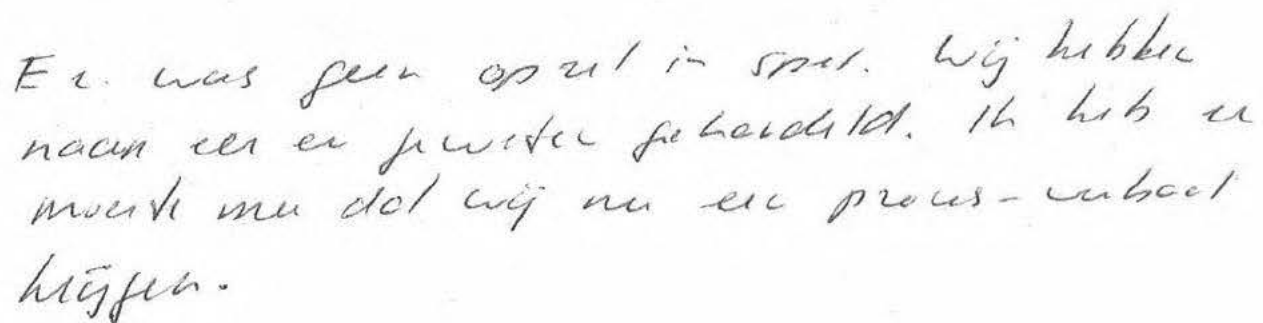 Er was geen opzet in spel. Wij hebben
naar eer en geweten gehandeld. Ik heb er
moeite mee dat wij nu een proces-verbaal
krijgen.